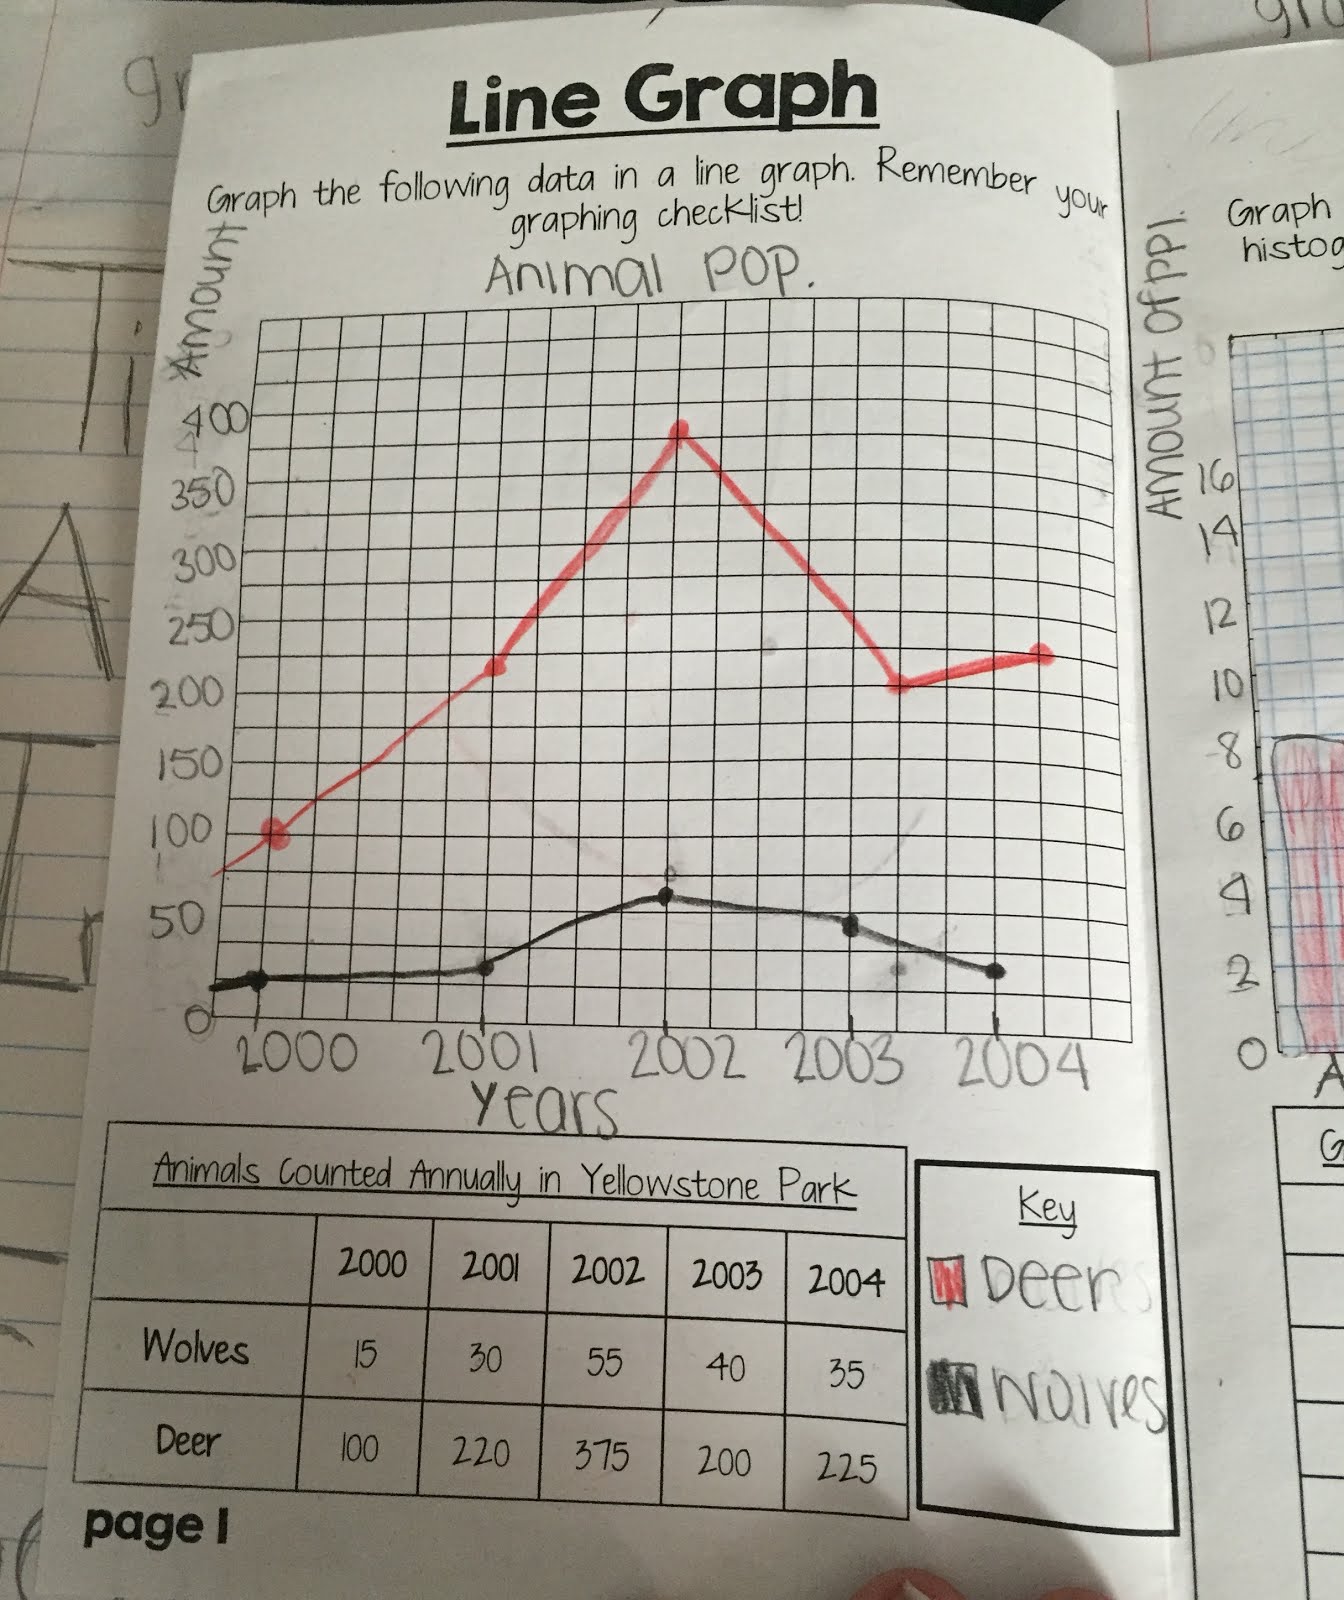 Line Graph
Graph the following data in a line graph. Remember your
graphing checklist!
Animal POP.
Amount
400
350
300
250
200
150
100
50
0
2000 2001 2002 2003 2004
Years
Animals Counted Annually in Yellowstone Park
2000 2001 2002 2003 2004
Wolves 15 30 55 40 35
Deer 100 220 375 200 225
Key
Deer
Wolves
page 1
Graph
histog
Amount of ppl.
16
14
12
10
8
6
4
2
0
A
G
gr
Ti
A
gra